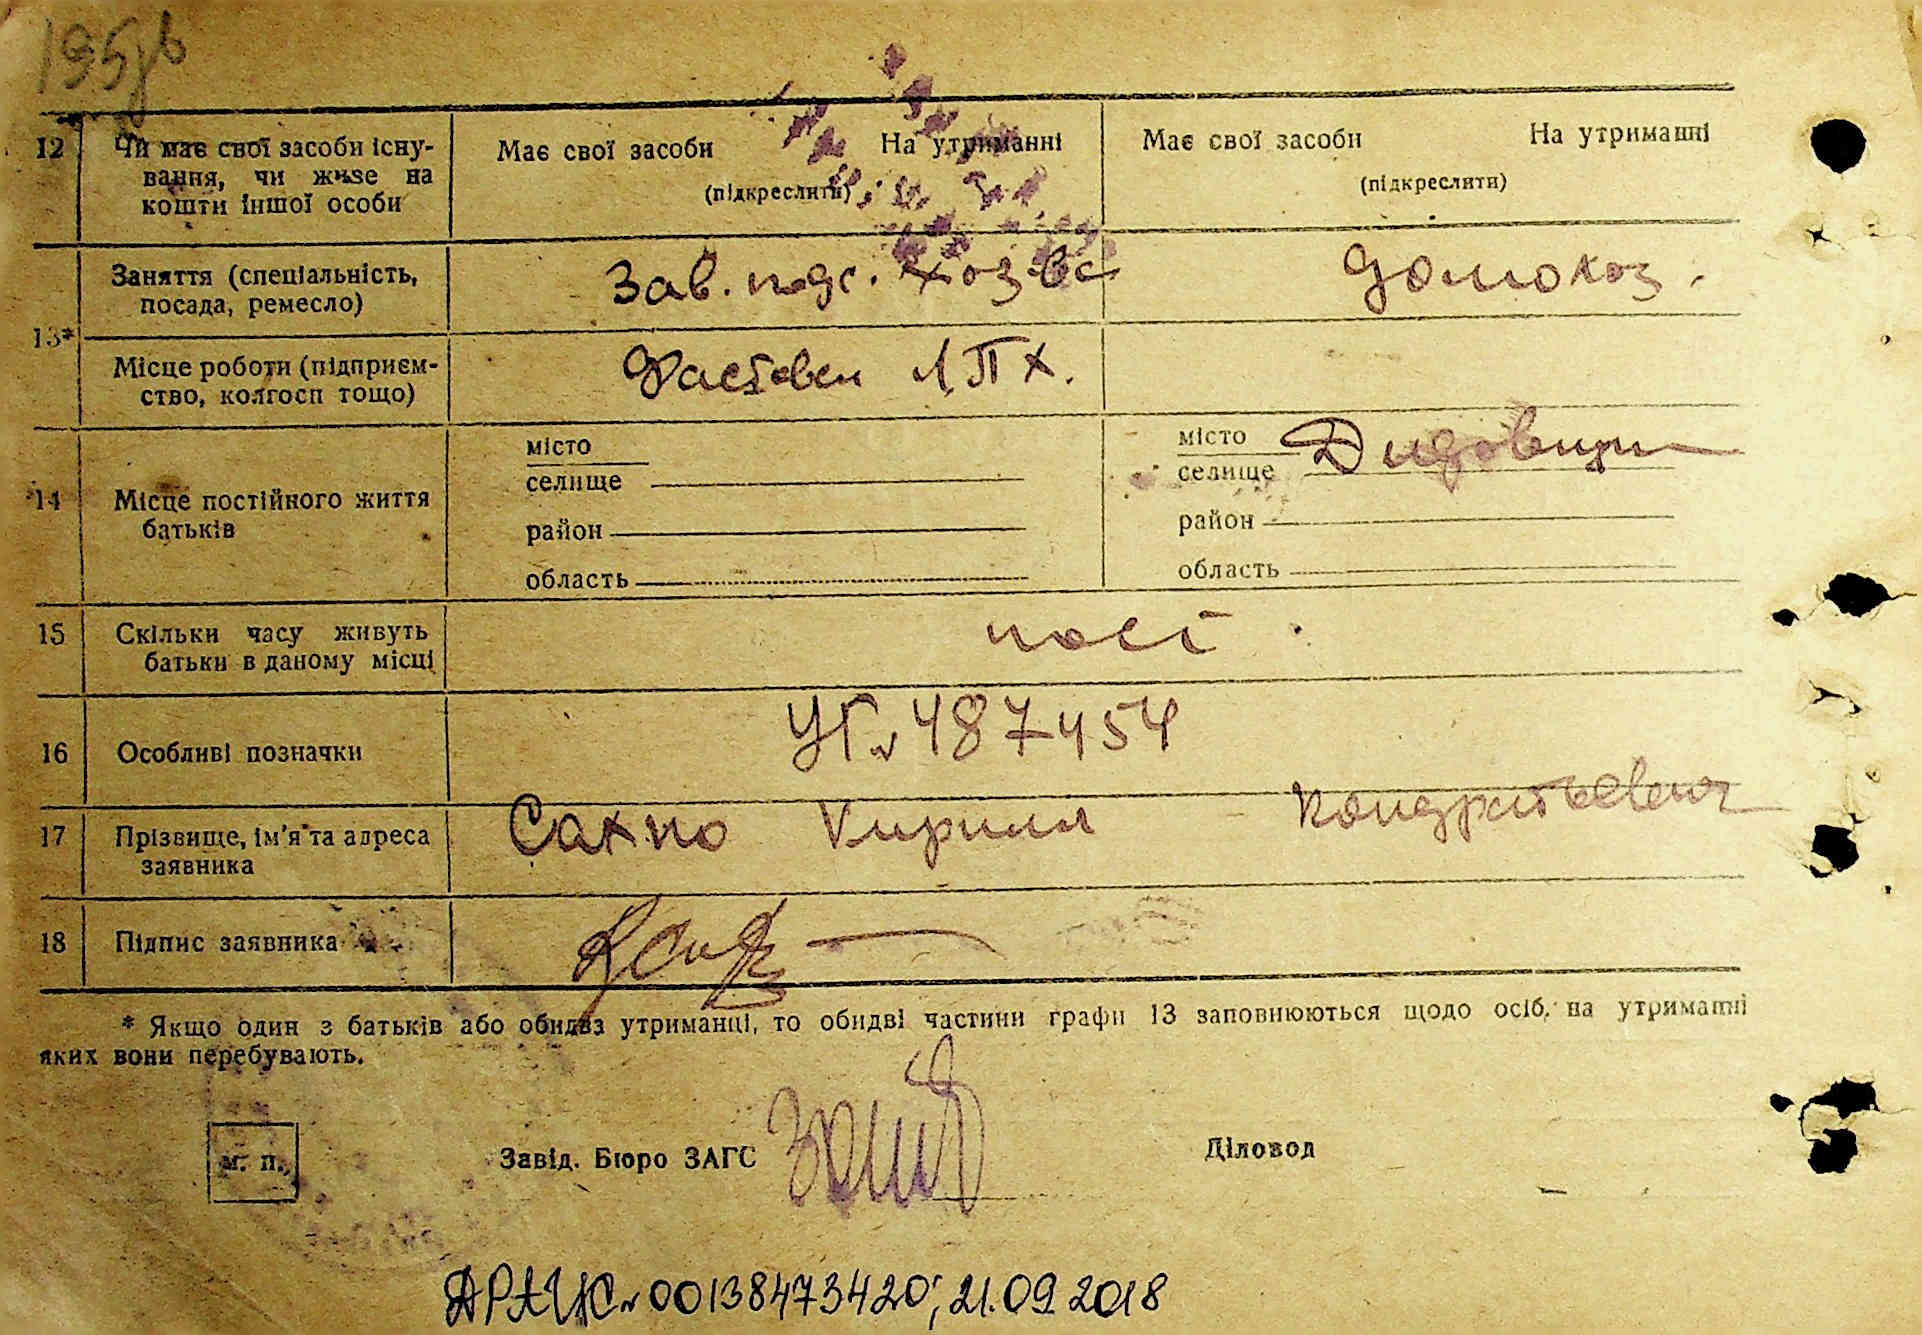 195зв
12 Чи має свої засоби існу- Має свої засоби На утриманні Має свої засоби На утриманні
вання, чи живе на (підкреслити) (підкреслити)
кошти іншої особи
13* Заняття (спеціальність, Зав. подс. хоз-ва домохоз.
посада, ремесло)
Місце роботи (підприєм- Фастовен ЛПХ.
ство, колгосп тощо)
14 Місце постійного життя місто місто Дидовщин
батьків селище селище
район район
область область
15 Скільки часу живуть пост.
батьки в даному місці
16 Особливі позначки УГ№487454
17 Прізвище, ім'я та адреса Сахно Кирилл Кондратьевич
заявника
18 Підпис заявника
* Якщо один з батьків або обидва утриманці, то обидві частини графи 13 заповнюються щодо осіб, на утриманні
яких вони перебувають.
м. п. Завід. Бюро ЗАГС Діловод
ДРАЦС№00138473420; 21.09.2018